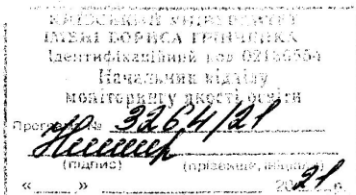 КИЇВСЬКИЙ УНІВЕРСИТЕТ
ІМЕНІ БОРИСА ГРІНЧЕНКА
Ідентифікаційний код 02136554
Начальник відділу
моніторингу якості освіти
Програма № 3264/21
(підпис) (прізвище, ініціали)
« » 2021 р.